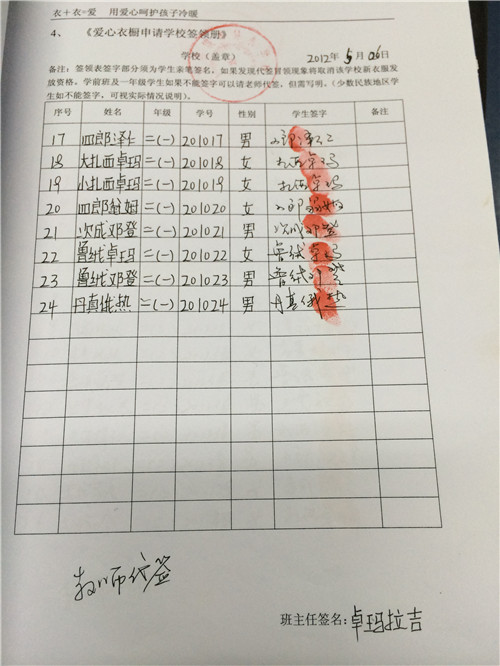 衣+衣=爱 用爱心呵护孩子冷暖
4、 《爱心衣橱申请学校签领册》
学校（盖章） 2012年5月06日
备注：签领表签字部分须为学生亲笔签名，如果发现代签冒领现象将取消该学校新衣服发
放资格。学前班及一年级学生如果不能签字可以请老师代签，但需写明。（少数民族地区学
生如不能签字，可视实际情况说明）。
序号 姓名 年级 学号 性别 学生签字 备注
17 四郎泽仁 二(一) 201017 男
18 大扎西卓玛 二(一) 201018 女 扎西卓玛
19 小扎西卓玛 二(一) 201019 女 扎西卓玛
20 四郎 二(一) 201020 女
21 次成邓登 二(一) 201021 男 次成邓登
22 鲁绒卓玛 二(一) 201022 女 鲁绒卓玛
23 鲁绒邓登 二(一) 201023 男 鲁绒邓登
24 丹真绒热 二(一) 201024 男 丹真绒热
教师代签
班主任签名：卓玛拉吉